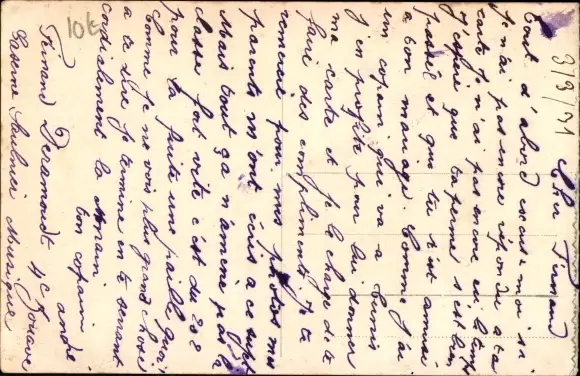 Cher Fernand
Tout d'abord excuse-moi si
je n'ai pas encore répondu a ta
carte je n'ai pas encore eu le temps
J'espère que ta perme s'est bien
passée et que tu t'est amusé
a ton mariage. Comme j'ai
un copain qui va a Tunis
j'en profite pour lui donner
ma carte et je le charge de te
faire des compliments. Je te
remercie pour mes photos mes
parents m'ont écris a ce sujet
Mais tout ça n'amène pas la
classe fort vite c'est du 202
pour la fuite une paille quoi
Comme je ne vois plus grand chose
a te dire je termine en te serrant
cordialement la main
ton copain
André
Fernand 4e Zouave
Caserne Musique
10k